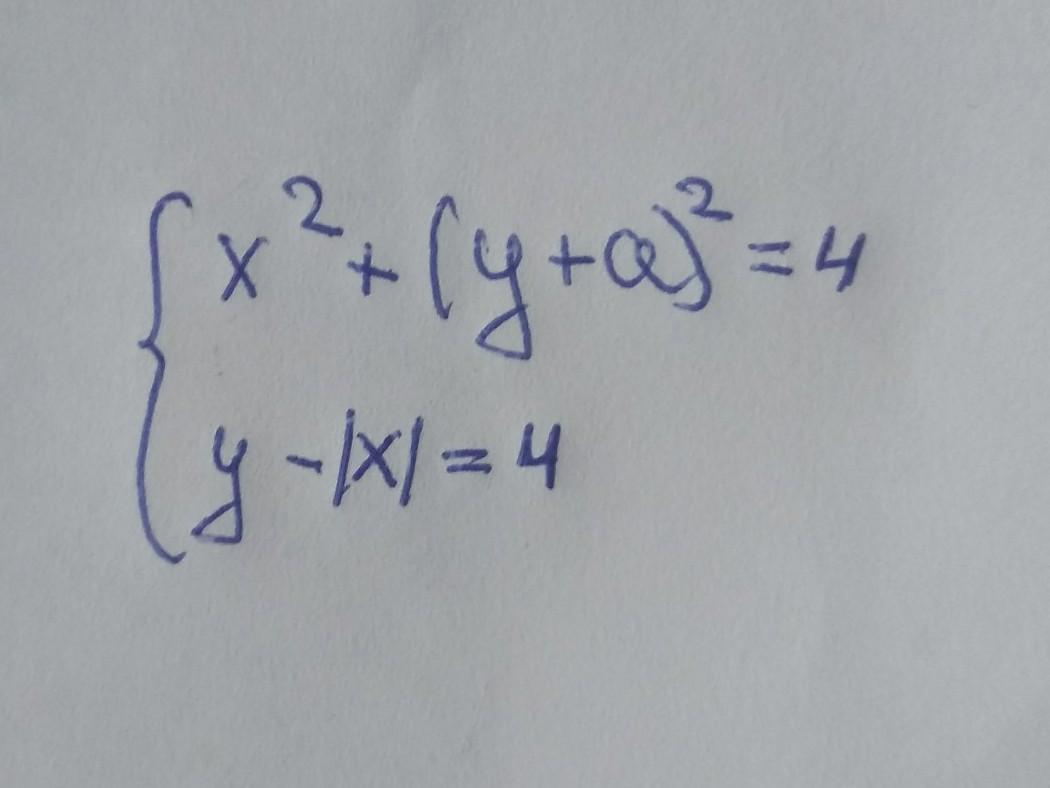 x² + (y + a)² = 4
y - |x| = 4